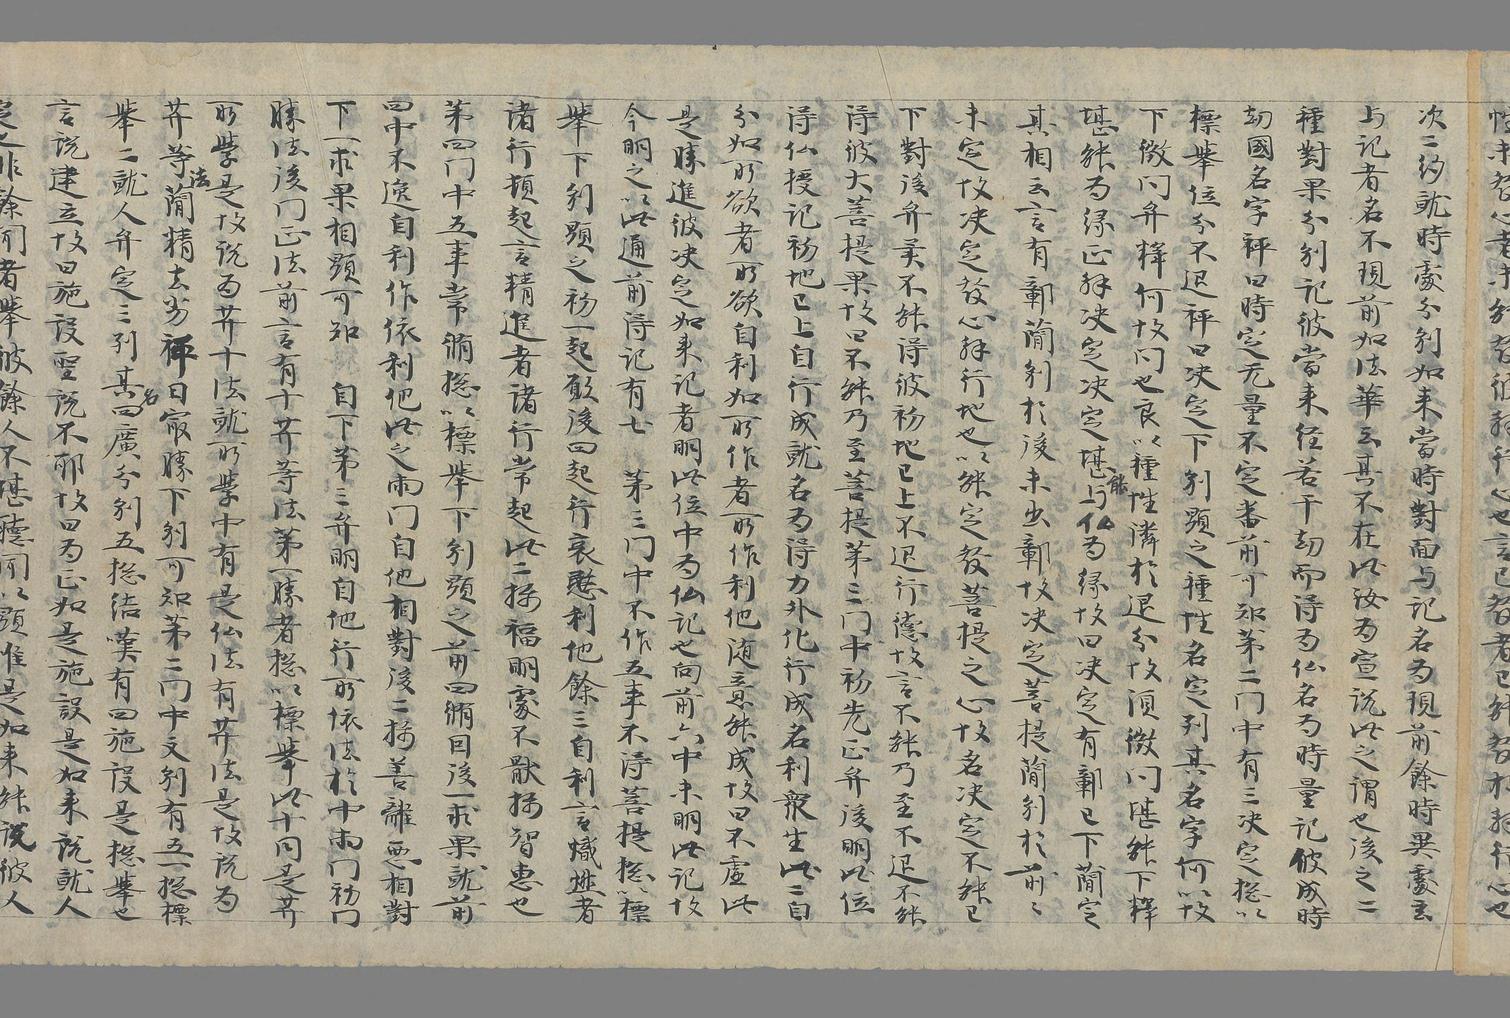 次二約就時處分別如来當時對面与記名为現前餘時異處玄
与記者名不現前如法華云其不在此汝为宣說此之謂也後之二
種對果分別記彼當来経若干劫而得为仏名为時量記彼成時
劫國名字秤曰時定无量不定番前可知第二门中有三决定捴以
標舉位分不退秤曰决定下別顕之種性名定列其名字何以故
下徴问并釋何故问也良以種性隣於退分故須徴问堪能下釋
堪能为緣正辤决定决定堪能与仏为緣故曰决定有鄣已下簡定
其相云言有鄣簡別於後未出鄣故决定菩提簡別於前〻
未定故决定發心辤行地也以能定發菩提之心故名决定不能已
下對後弁異不能得彼初地已上不退行德故言不能乃至不退不能
得彼大菩提果故曰不能乃至菩提第三门中初先正弁後明此位
得仏授記初地已上自行成就名为得力外化行成名利衆生此二自
分如所欲者所欲自利如所作者所作利他随意能成故曰不虚此
是勝進彼决定如来記者明此位中为仏記也向前六中未明此記故
今明之以此通前得記有七 第三门中不作五事不得菩提捴以標
舉下別顕之初一起願後四起行哀愍利他餘三自利言熾燃者
諸行頓起言精進者諸行常起此二揚福明處不猒揚智恵也
第四门中五事常脩捴以標舉下別顕之前四脩因後一求果就前
四中不逸自利作依利他此之兩门自他相對後二揚善離惡相對
下一求果相顕可知 自下第三弁明自他行所依法於中兩门初门
勝法後门正法前言有十菩薩等法第一勝者捴以標舉此十同是菩薩
所學是故說为菩薩十法就所學中有是仏法有菩薩法是故說为
菩薩等法簡精去劣秤曰㝡勝下列可知第二门中文別有五一捴標
舉二就人弁定三列其名四廣分別五捴结嘆有四施設是捴舉也
言說建立故曰施設聖說不耶故曰为正如是施設是如来說就人
定之非餘聞者舉彼餘人不堪聴聞以顕唯是如来能說彼人